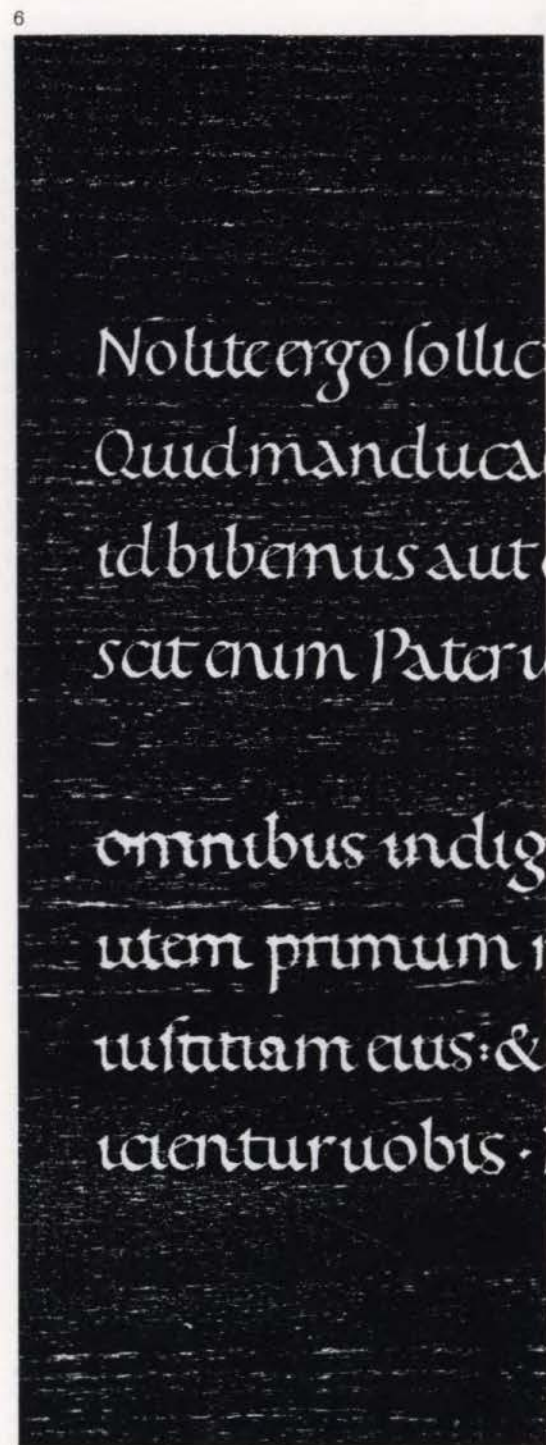 6
Nolite ergo ſollic
Quid manduca
id bibemus aut
scit enim Pater u
omnibus indig
utem primum
iuſtitiam eius: &
icientur uobis ·